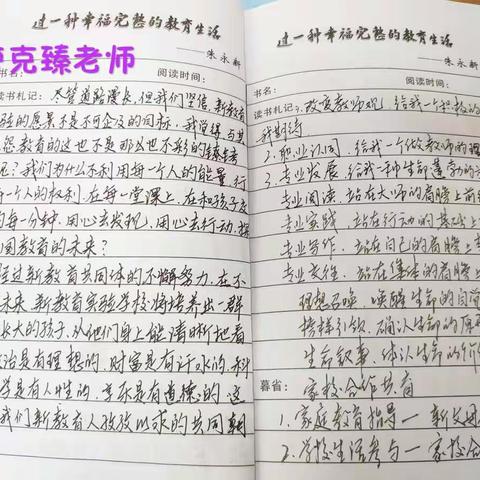 过一种幸福完整的教育生活
——朱永新
克臻老师
书名：
阅读时间：
读书札记：尽管道路漫长，但我们坚信，新教育
验的愿景不是不可企及的目标，我觉得，与其
怨教育的这也不是那么也不形的
见？我们为什么不利用每一个人的能量，行
每一个人的权利，在每一堂课上，在和孩子
的每一分钟，用心去发现，用心去行动，探
国教育的未来？
经过新教育共同体的不懈努力，在不
未来，新教育实验学校将培养出一群
长大的孩子，从他们身上能清晰地看
政治是有理想的，财富是有汗水的，科
学是有人性的，享乐是有道德的。这
我们新教育人孜孜以求的共同朝
过一种幸福完整的教育生活
——朱永新
书名：
阅读时间：
读书札记：改变教师观，给我一个积极的
我期待
2.职业认同，给我一个做教师的理
3.专业发展，给我一种生命蓬勃的
专业阅读，站在大师的肩膀上前
专业实践，站在行动的基础上
专业写作，站在自己的肩膀上
专业交往，站在集体的肩膀上
理想召唤，唤醒生命的自觉
榜样引领，确认生命的原型
生命叙事，体认生命的价
暮省：
家校合作共育
1.家庭教育指导—新父母
2.学校生活参与—家校合